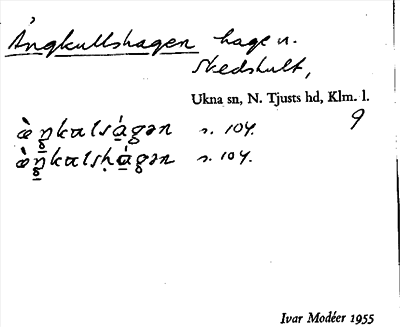 Ångkullshagen hage u.
Skedshult,
Ukna sn, N. Tjusts hd, Klm. l.
9
s. 104.
s. 104.
Ivar Modéer 1955